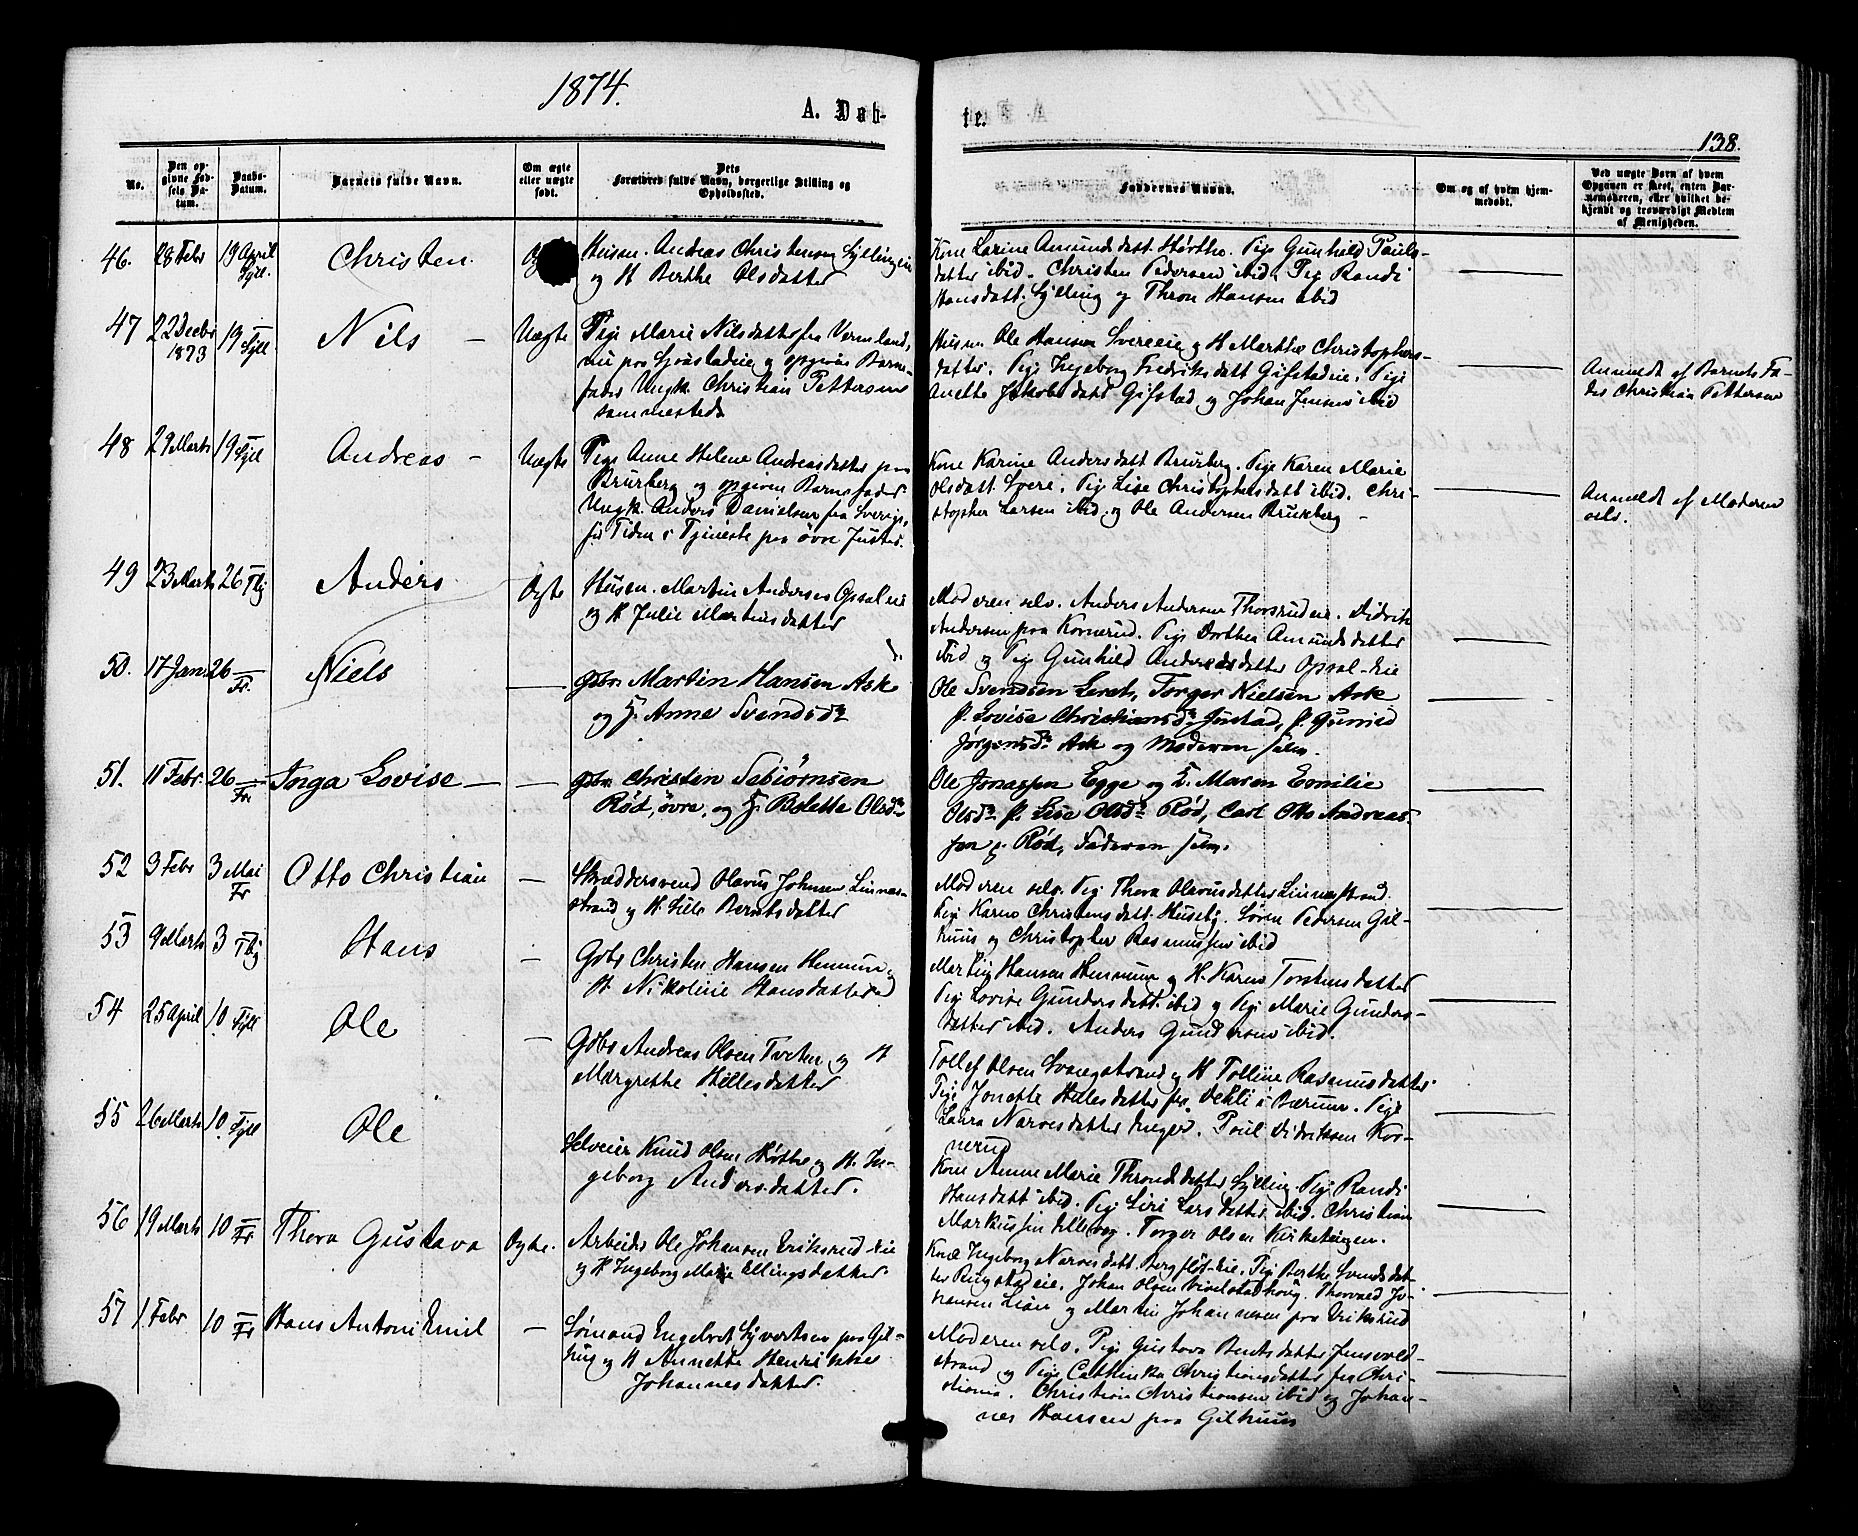 1874.
A. Døb-
te.
138.
No.
Den op-
givne Fød-
sels Da-
tum.
Daabs-
Datum.
Barnets fulde Navn.
Om ægte
eller uægte
født.
Dets
Forældres fulde Navn, borgerlige Stilling og
Opholdssted.
Faddernes Navne.
Om og af hvem hjem-
medøbt.
Ved uægte Børn af hvem
Opgaven er skeet, enten Bar-
nemoderen, eller hvilket be-
kjendt og troværdigt Medlem
af Menigheden.
46. 28 Febr 19 April Syll. Christen
Husm. Andreas Christensen Syllingeie
og H Berthe Olsdatter
Kone Karine Amundsdatt. Støtthe. Pige Gunhild Pauls-
datter ibid. Christen Pedersen ibid. Pig Randi
Hansdatt. Sylling og Thron Hansen ibid
47 22 Decbr 1873 19 Syll Nils – Uægte
Pige Marie Nilsdatter fra Vermland,
nu paa Gjøstadeie og opgiven Barne-
fader Ungk. Christian Pettersen
sammesteds
Husm Ole Hansen Svereeie og H Marthe Christophers-
datter. Pige Ingeborg Fredriksdatt Gifstadeie. Pige
Anette Jakobsdatt Gifstad og Johan Jensen ibid
Anmeldt af Barnets Fa-
der Christian Pettersen
48 29 Marts 19 Syll Andreas – Uægte
Pige Anne Helene Andreasdatter paa
Brurberg og opgiven Barnefader
Ungk. Anders Danielsen fra Sverige,
for Tiden i Tjeneste paa øvre Justad.
Kone Karine Andersdatt Brurberg. Pige Karen Marie
Olsdatt Svere. Pig Lise Christophersdatt ibid. Chri-
stopher Larsen ibid. og Ole Andersen Brurberg –
Anmeldt af Moderen
selv.
49 23 Marts 26 Tbg Anders Ægte
Husm. Martin Andersen Opsaleie
og H Julie Martinsdatter
Moderen selv. Anders Andersen Thorsrudeie. Didrik
Andersen paa Kornerud. Pige Dorthea Amundsdatter
ibid og Pige Gunhild Andersdatter Opsal-Eie
50. 17 Jan. 26 Fr. Niels —
Gbr. Martin Hansen Ask
og H. Anne Svendsdr
Ole Svendsen Leret, Torger Nielsen Ask
P. Lovise Christiansdr Justad, P. Gunild
Jørgensdr Ask og Moderen selv.
51. 11 Febr. 26 Fr Inga Lovise — —
Gbr. Christen Sebiørnsen
Rød, øvre, og H. Bolette Olsdr
Ole Jonassen Egge og H. Maren Emilie
Olsdr P. Lise Olsdr Rød, Carl Otto Andreas-
sen Rød, Faderen selv.
52 3 Febr 3 Mai Fr Otto Christian —
Skræddersvend Olavus Johnsen Linnes-
strand og H. Lise Berntsdatter
Moderen selv. Pige Thora Olavusdatter Linnesstrand.
Pige Karen Christensdatt. Huseby. Søren Pedersen Gil-
huus og Christopher Rasmussen ibid
53 9 Marts 3 Tbg Hans —
Gbr Christen Hansen Hennum og
H Nikoline Hansdatter
Martin Hansen Hennum og H. Karen Torstensdatter
Pige Lovise Gundersdatt. ibid og Pige Marie Gunders-
datter ibid. Anders Gundersen ibid.
54 25 April 10 Syll Ole —
Gbr Andreas Olsen Tveten og H
Margrethe Hellesdatter
Tollef Olsen Svangstrand og H Tolline Rasmusdatter
Pige Jonette Hellesdatter fra Dehli i Bærum. Pige
Laura Narvesdatter Enger. Poul Didriksen Kor-
nerud
55 26 Marts 10. Syll Ole
Selveier Knud Olsen Støtthe og H. In-
geborg Andersdatter.
Kone Anne Marie Throndsdatter Sylling. Pige Randi
Hansdatt ibid. Pige Siri Larsdatter ibid. Christian
Markussen Ullevog. Torger Olsen Kirketeigen.
56 19 Marts 10 Fr. Thora Gustava Ægte.
Arbeider Ole Johansen Eriksrud Eie
og H Ingeborg Marie Ellingsdatter.
Kone Ingeborg Narvesdatt. Bergflød-Eie. Pige Berthe Svendsdat-
ter Ringstadeie. Johan Olsen Vivelstadhoug. Thorvald Jo-
hansen Lien og Martin Johannesen paa Eriksrud
57 1 Febr 10 Fr Hans Anton Emil —
Sømand Engebret Syvertsen paa Gil-
huus og H Annette Henrikke
Johannesdatter.
Moderen selv. Pige Gustava Berntsdatter Jensvold-
strand og Pige Cathinka Christiansdatter fra Chri-
stiania. Christian Christiansen ibid og Johan-
nes Hansen paa Gilhuus